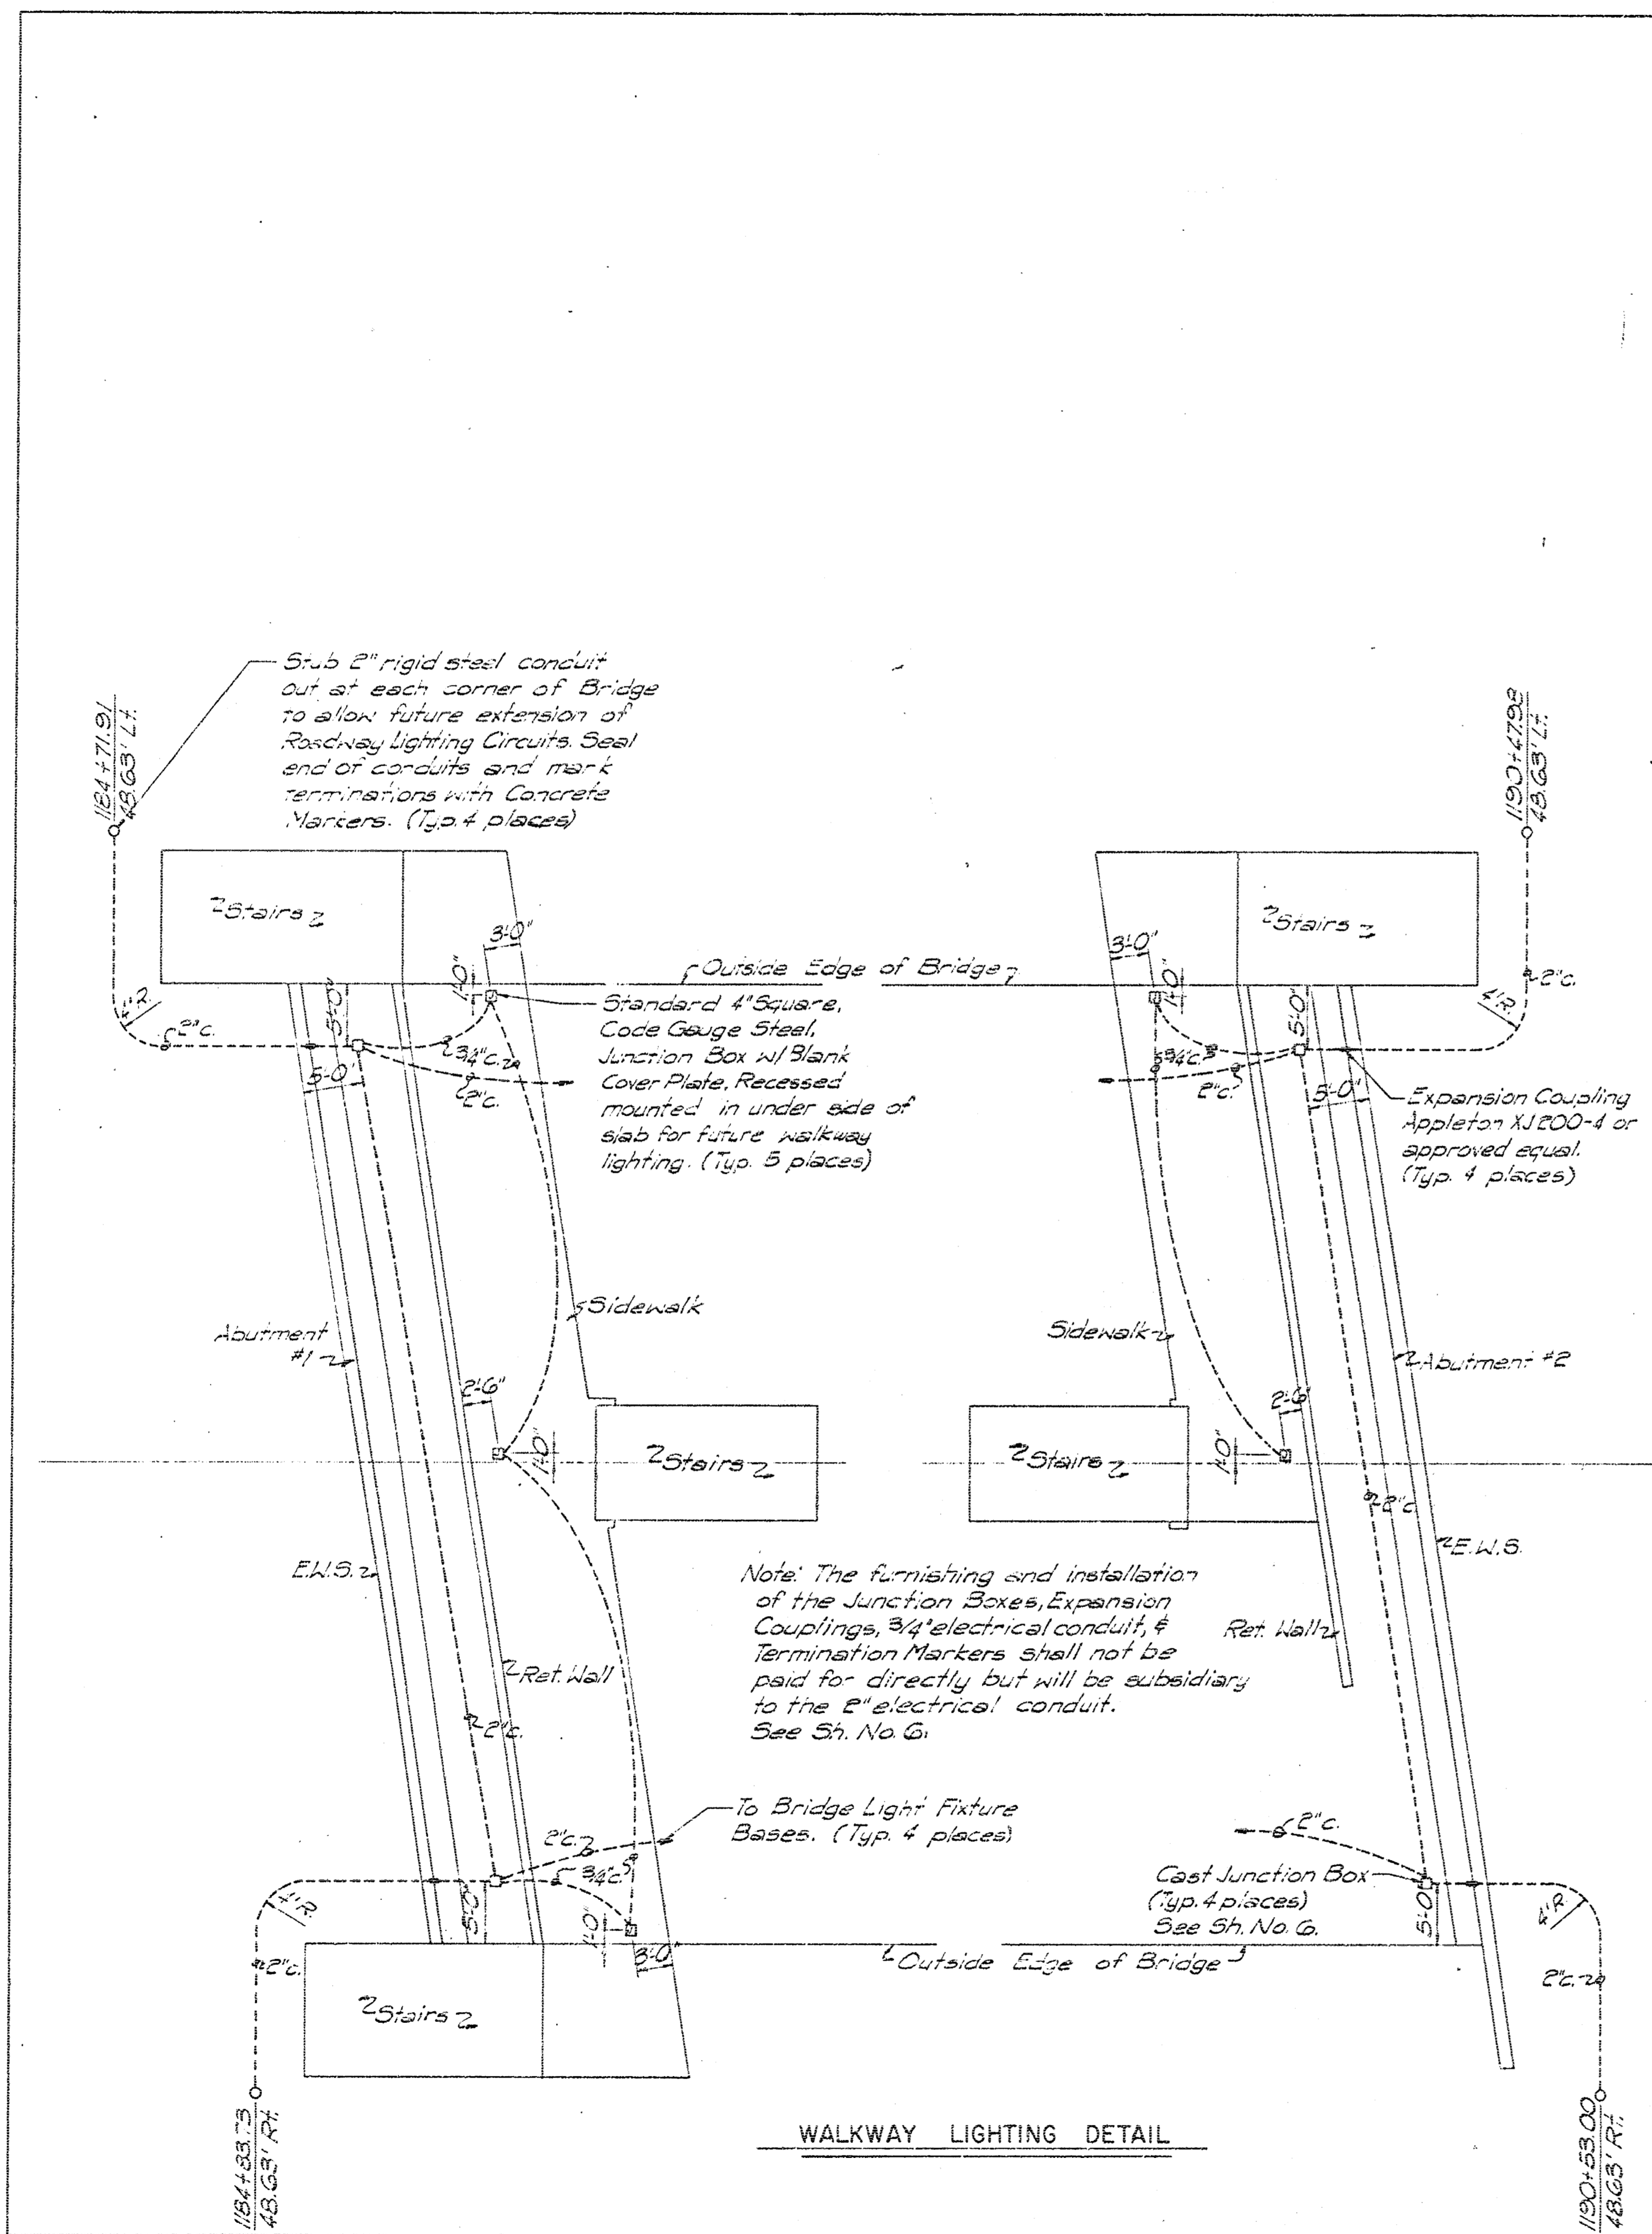 Stub 2" rigid steel conduit
out at each corner of Bridge
to allow future extension of
Roadway Lighting Circuits. Seal
end of conduits and mark
terminations with Concrete
Markers. (Typ. 4 places)
1184+71.91
48.63' Lt.
1190+47.98
48.63' Lt.
Stairs
Stairs
3'-0"
3'-0"
Outside Edge of Bridge
1'-0"
1'-0"
5'-0"
5'-0"
4' R.
4' R.
2"c.
2"c.
3/4"c.
3/4"c.
2"c.
2"c.
5'-0"
5'-0"
Standard 4" Square,
Code Gauge Steel,
Junction Box w/ Blank
Cover Plate, Recessed
mounted in under side of
slab for future walkway
lighting. (Typ. 5 places)
Expansion Coupling
Appleton XJ200-4 or
approved equal.
(Typ. 4 places)
Sidewalk
Sidewalk
Abutment
#1
Abutment #2
2'-6"
2'-6"
1'-0"
1'-0"
Stairs
Stairs
2"c.
E.W.S.
E.W.S.
Note: The furnishing and installation
of the Junction Boxes, Expansion
Couplings, 3/4" electrical conduit, &
Termination Markers shall not be
paid for directly but will be subsidiary
to the 2" electrical conduit.
See Sh. No. 6.
Ret. Wall
Ret. Wall
2"c.
To Bridge Light Fixture
Bases. (Typ. 4 places)
2"c.
2"c.
3/4"c.
Cast Junction Box
(Typ. 4 places)
See Sh. No. 6.
4' R.
4' R.
5'-0"
5'-0"
1'-0"
3'-0"
Outside Edge of Bridge
2"c.
2"c.
Stairs
1184+83.73
48.63' Rt.
1190+53.00
48.63' Rt.
WALKWAY LIGHTING DETAIL